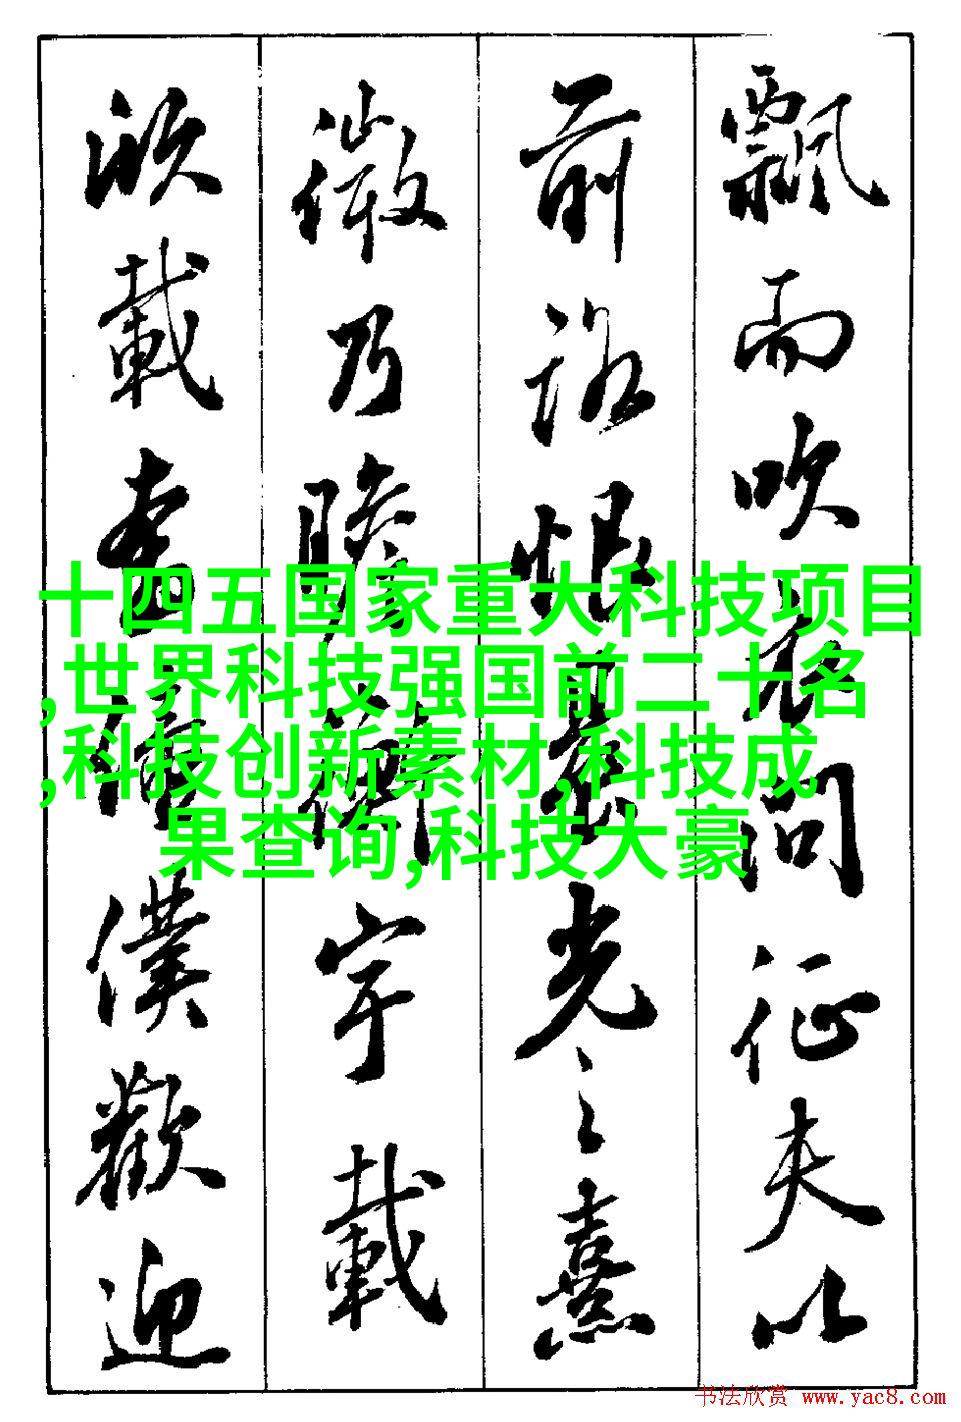 飄而吹衣問征夫以
前路恨晨光之熹
微乃瞻衡宇載
欣載奔僮僕歡迎
十四五国家重大科技项目
,世界科技强国前二十名
,科技创新素材,科技成
果查询,科技大豪
书法欣赏 www.yac8.com